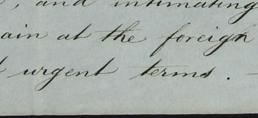 , and intimating
ain at the foreign
urgent terms. —